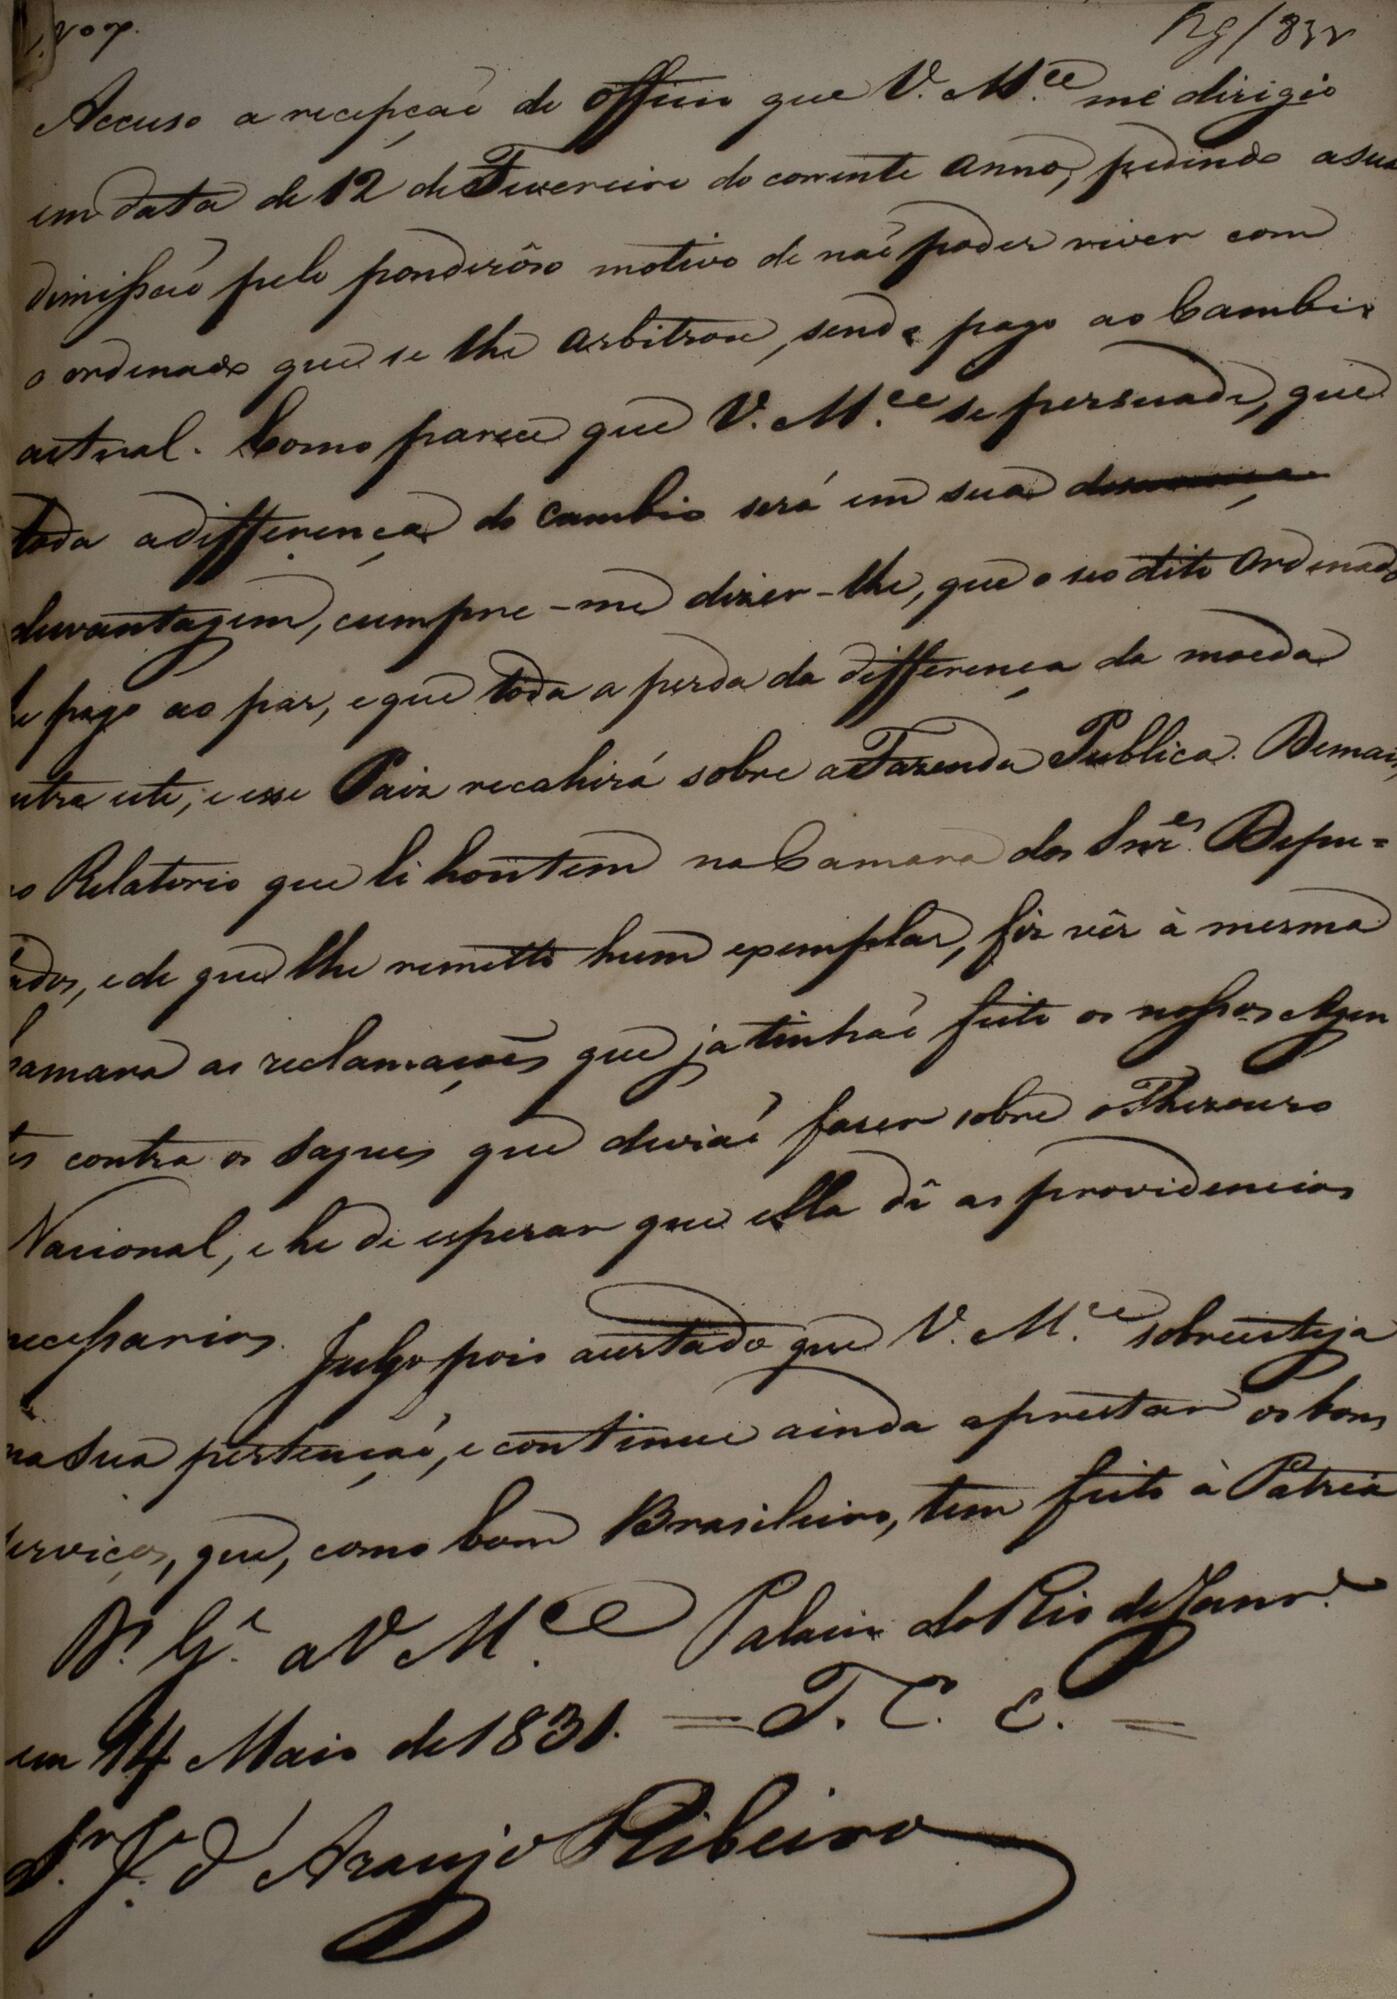 N.º 7.
Accuso a recepção do officio que V. M.ce me dirigio
em data de 12 de Fevereiro do corrente anno, pedindo a sua
dimissaõ pelo ponderôso motivo de naõ poder viver com
o ordenado que se lhe arbitrou, sendo pago ao Cambio
actual. Como parece que V. M.ce se persuade, que
toda a differença do cambio será em sua
desvantagem, cumpre-me dizer-lhe, que o seo dito Ordenado
he pago ao par, e que toda a perda da differença da moeda
entre este, e esse Paiz recahirá sobre a Fazenda Publica. Demais,
no Relatorio que li hontem na Camara dos Snr.es Depu=
tados, e de que lhe remetto hum exemplar, fiz vêr à mesma
Camara as reclamaçoẽs que ja tinhaõ feito os nossos Agen
tes contra os saques que deviaõ fazer sobre o Thezouro
Nacional, e he de esperar que ella dê as providencias
necessarias. Julgo pois acertado que V. M.ce sobreesteja
na sua pertençaõ, e continue ainda a prestar os bons
serviços, que, como bom Brasileiro, tem feito à Patria
D.s G.e a V M.ce Palacio do Rio de Janr.o
em 14 Maio de 1831. = F. C. C. =
Sr. J.e d'Araujo Ribeiro